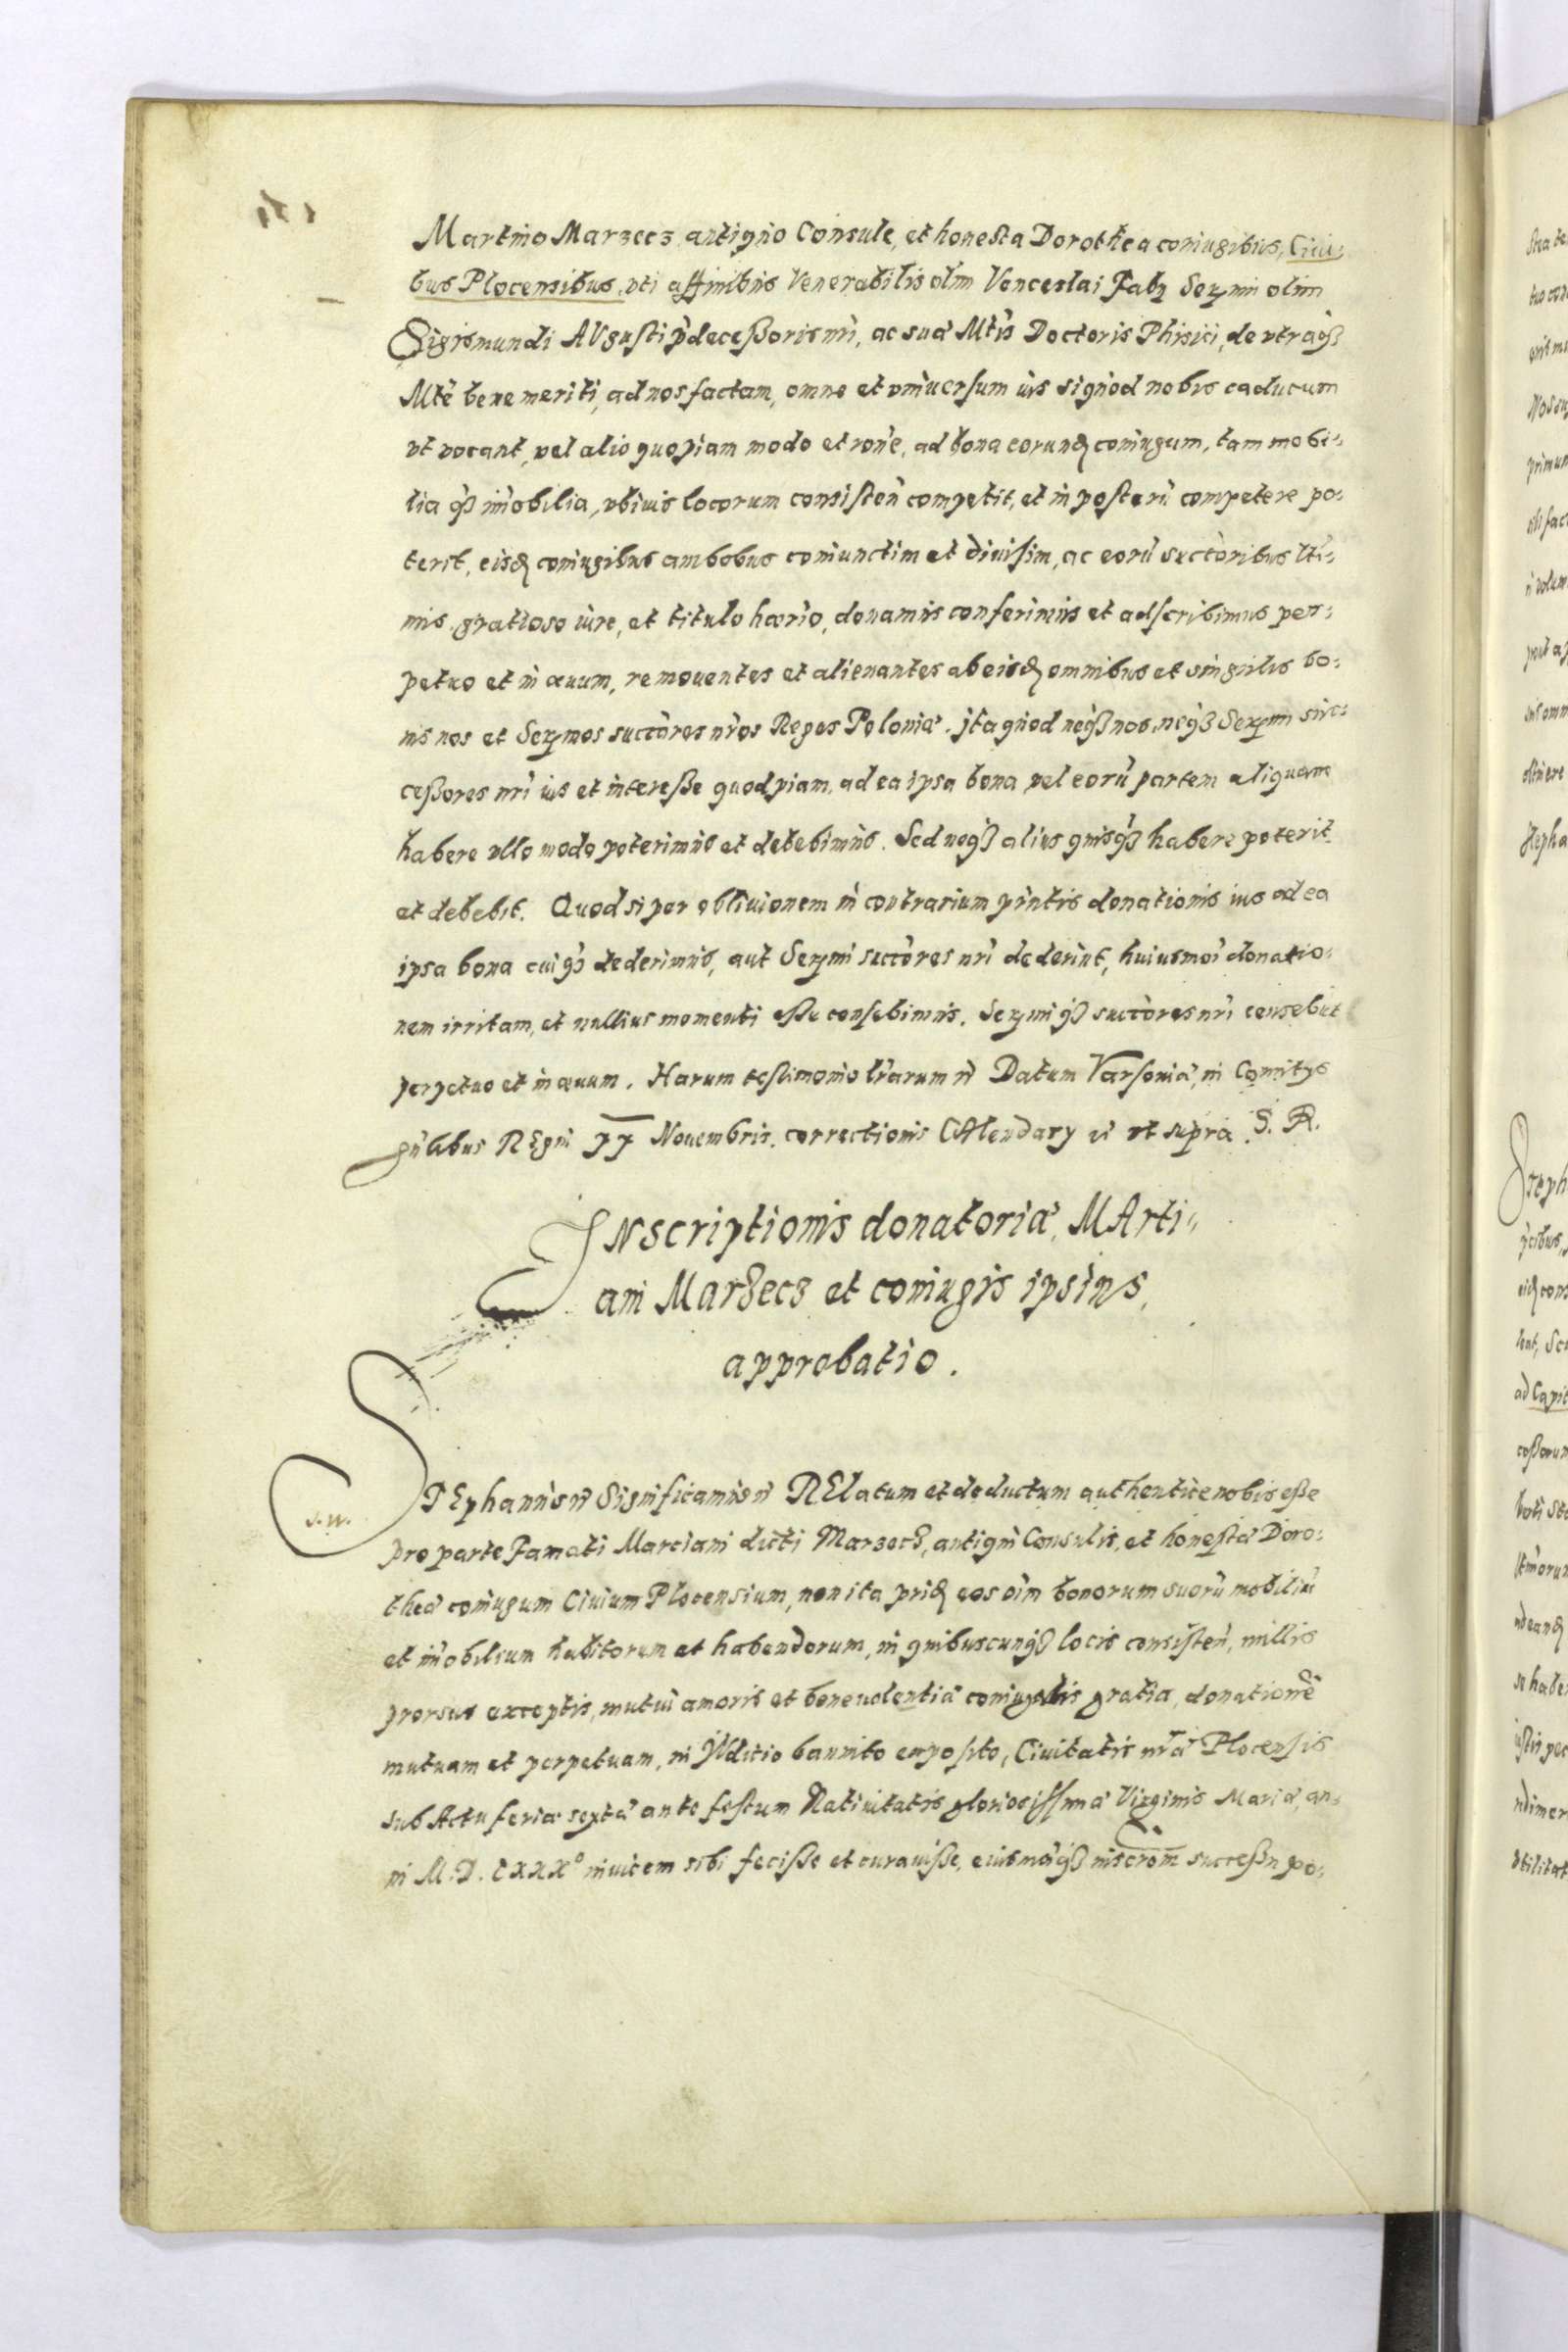 Martino Marzecz antiquo Consule, et honesta Dorothea coniugibus, Ciui:
bus Plocensibus, vti affinibus Venerabilis olim Venceslai Fabri Sermi olim
Sigismundi AVgusti p̃decessoris nr̃i, ac suæ Mtis Doctoris Phisici, de vtraq3
Mte bene meriti, ad nos factam, omne et vniuersum ius siquod nobis caducum
vt vocant, vel alio quopiam modo et rõne, ad bona eorund coniugum, tam mobi:
lia q3 im̃obilia, vbiuis locorum consisteñ competit, et in posterũ competere po:
terit, eisd coniugibus ambobus coniunctim et diuisim, ac eorũ succtoribus lti:
mis gratioso iure, et titulo hærio, donamus conferimus et adscribimus per:
petuo et in æuum, remouentes et alienantes ab eisd omnibus et singulis bo:
nis nos et Sermos succtores nr̃os Reges Poloniæ. jta quod neq3 nos, neq3 Sermi suc:
cessores nr̃i ius et interesse quodpiam, ad ea ipsa bona vel eorũ partem aliquam
habere vllo modo poterimus et debebimus. Sed neq3 alius quisq3 habere poterit
et debebit. Quod si per obliuionem in contrarium pñtis donationis ius ad ea
ipsa bona cuiq3 dederimus, aut Sermi succtores nr̃i dederint, huiusmoi donatio:
nem irritam, et nullius momenti esse censebimus. Sermiq3 succtores nr̃i censebũt
perpetuo et in æuum. Harum testimonio lr̃arum ñ Datum Varsouiæ, in Comitys
gñlibus REgni Nouembris. correctionis CAlendary ñ vt supra. S. R.
INscriptionis donatoriæ, MArti:
ani Marzecz et coniugis ipsius,
approbatio.
S. W.
STEphanus ñ Significamus ñ RElatum et deductum authentice nobis esse
pro parte Famati Marciani dicti Marzecz, antiqui Consulis, et honestæ Doro:
theæ coniugum Ciuium Plocensium, non ita prid eos oĩm bonorum suorũ mobiliũ
et im̃obilium habitorum et habendorum, in quibuscunq3 locis consisteñ, nullis
prorsus exceptis, mutui amoris et beneuolentiæ coniugalis gratia, donationẽ
mutuam et perpetuam, in Juditio bannito exposito, Ciuitatis nr̃æ Plocensis
sub Actu feria sexta ante festum Natiuitatis gloriosissimæ Virginis Mariæ, an:
ni M.D.LXXXº inuicem sibi fecisse et curauisse, eiusmoiq3 inscrom po: